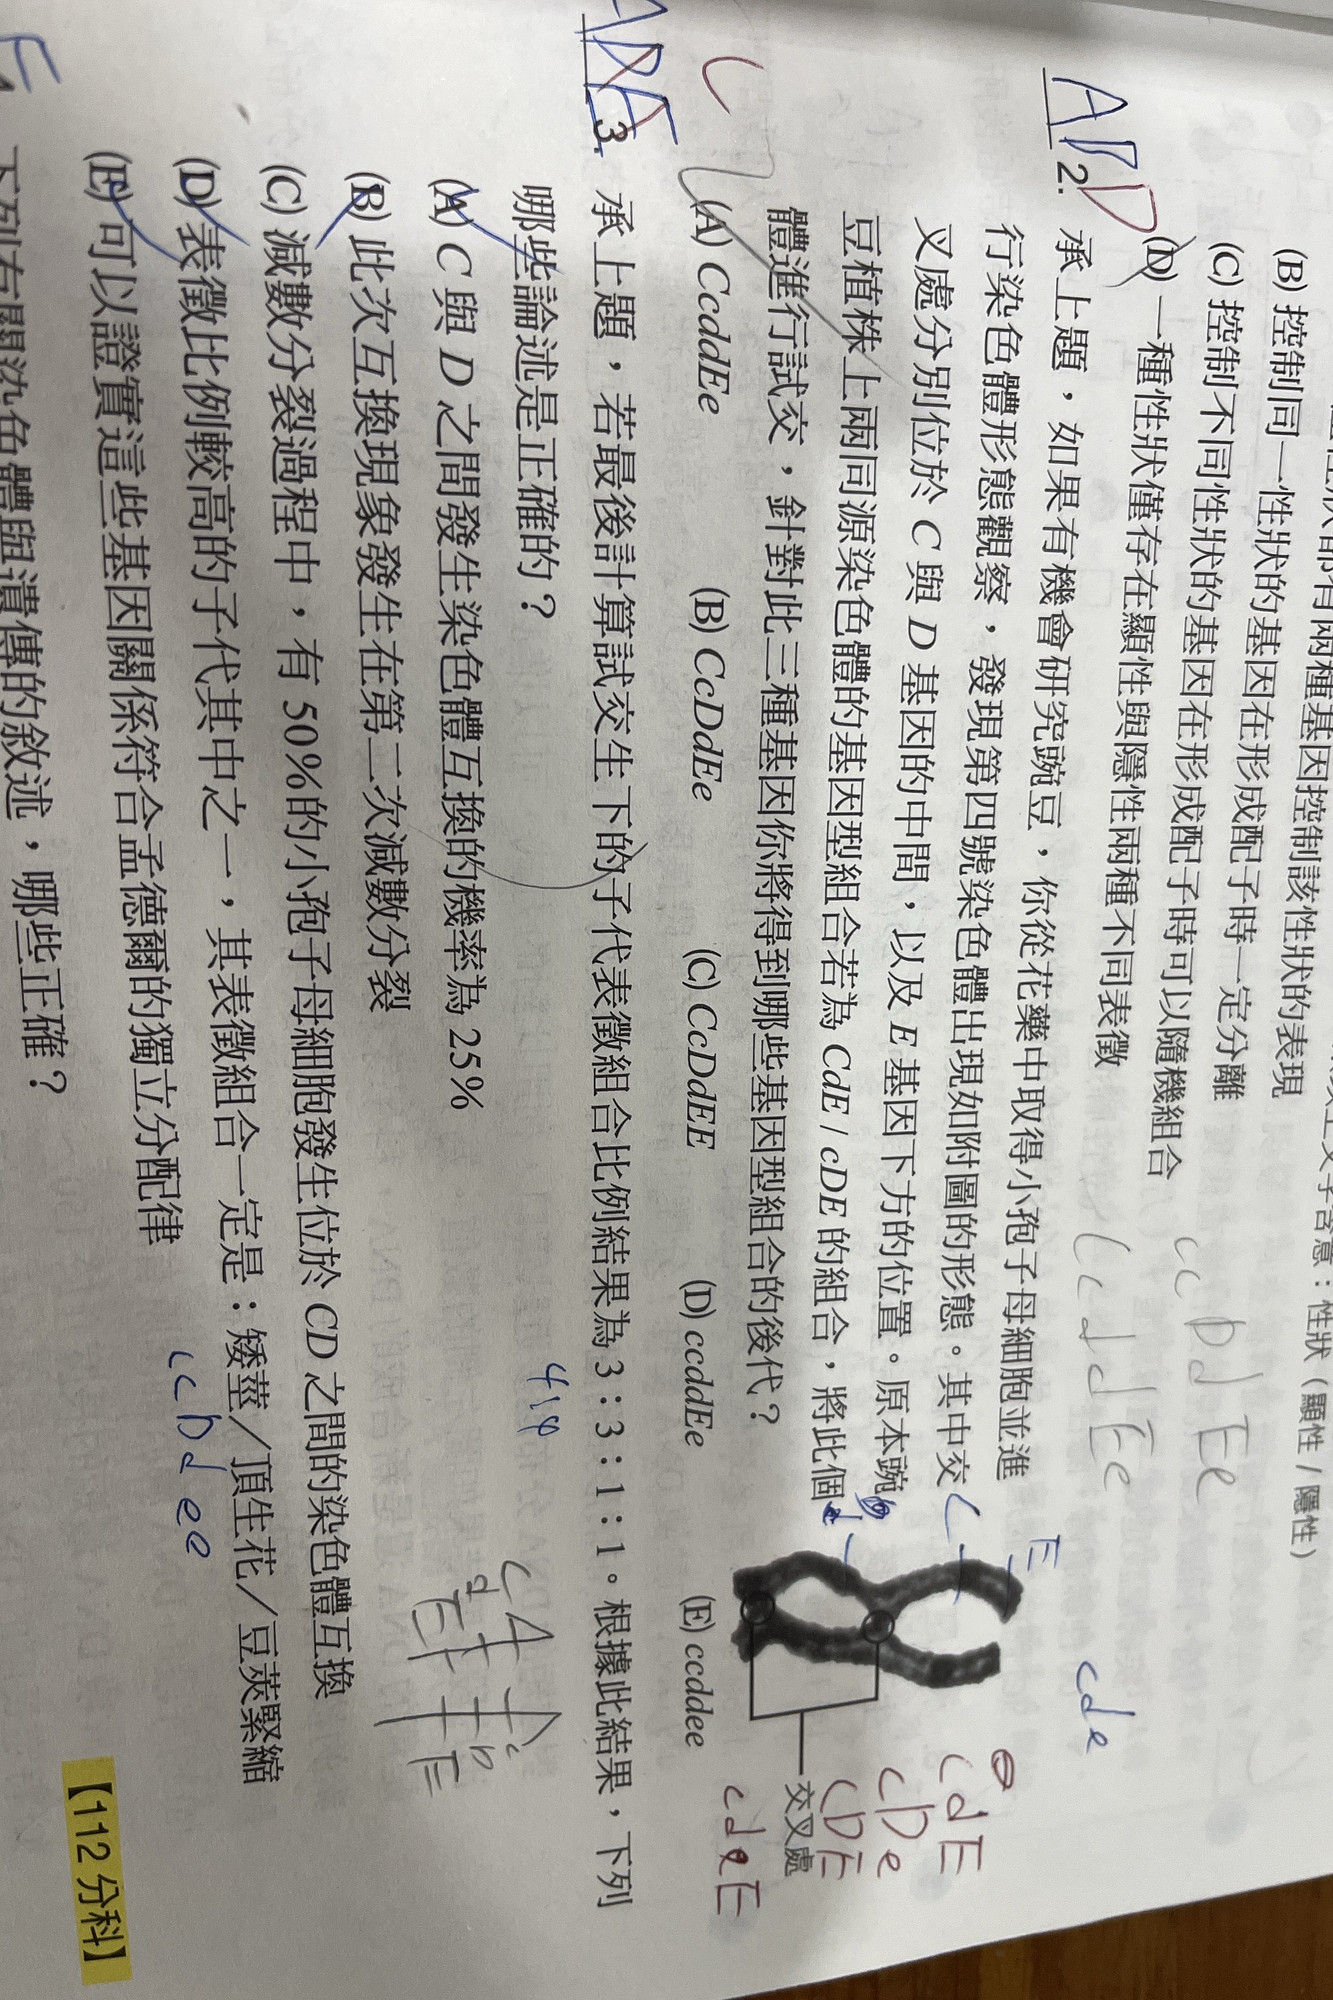 (B) 控制同一性狀的基因在形成配子時一定分離
(C) 控制不同性狀的基因在形成配子時可以隨機組合
(D) 一種性狀僅存在顯性與隱性兩種不同表徵
ABD
2. 承上題，如果有機會研究豌豆，你從花藥中取得小孢子母細胞並進
行染色體形態觀察，發現第四號染色體出現如附圖的形態。其中交
叉處分別位於 C 與 D 基因的中間，以及 E 基因下方的位置。原本豌
豆植株上兩同源染色體的基因型組合若為 CdE / cDE 的組合，將此個
體進行試交，針對此三種基因你將得到哪些基因型組合的後代？
(A) CcddEe (B) CcDdEe (C) CcDdEE (D) ccddEe (E) ccddee
交叉處
ccDdEe
CcddEe
cde
CdE
cDe
CDE
cdeE
ADE
C
3. 承上題，若最後計算試交生下的子代表徵組合比例結果為 3：3：1：1。根據此結果，下列
哪些論述是正確的？
(A) C 與 D 之間發生染色體互換的機率為 25%
(B) 此次互換現象發生在第二次減數分裂
(C) 減數分裂過程中，有 50%的小孢子母細胞發生位於 CD 之間的染色體互換
(D) 表徵比例較高的子代其中之一，其表徵組合一定是：矮莖／頂生花／豆莢緊縮
(E) 可以證實這些基因關係符合孟德爾的獨立分配律
ccDdee
【112 分科】
下列有關染色體與遺傳的敘述，哪些正確？